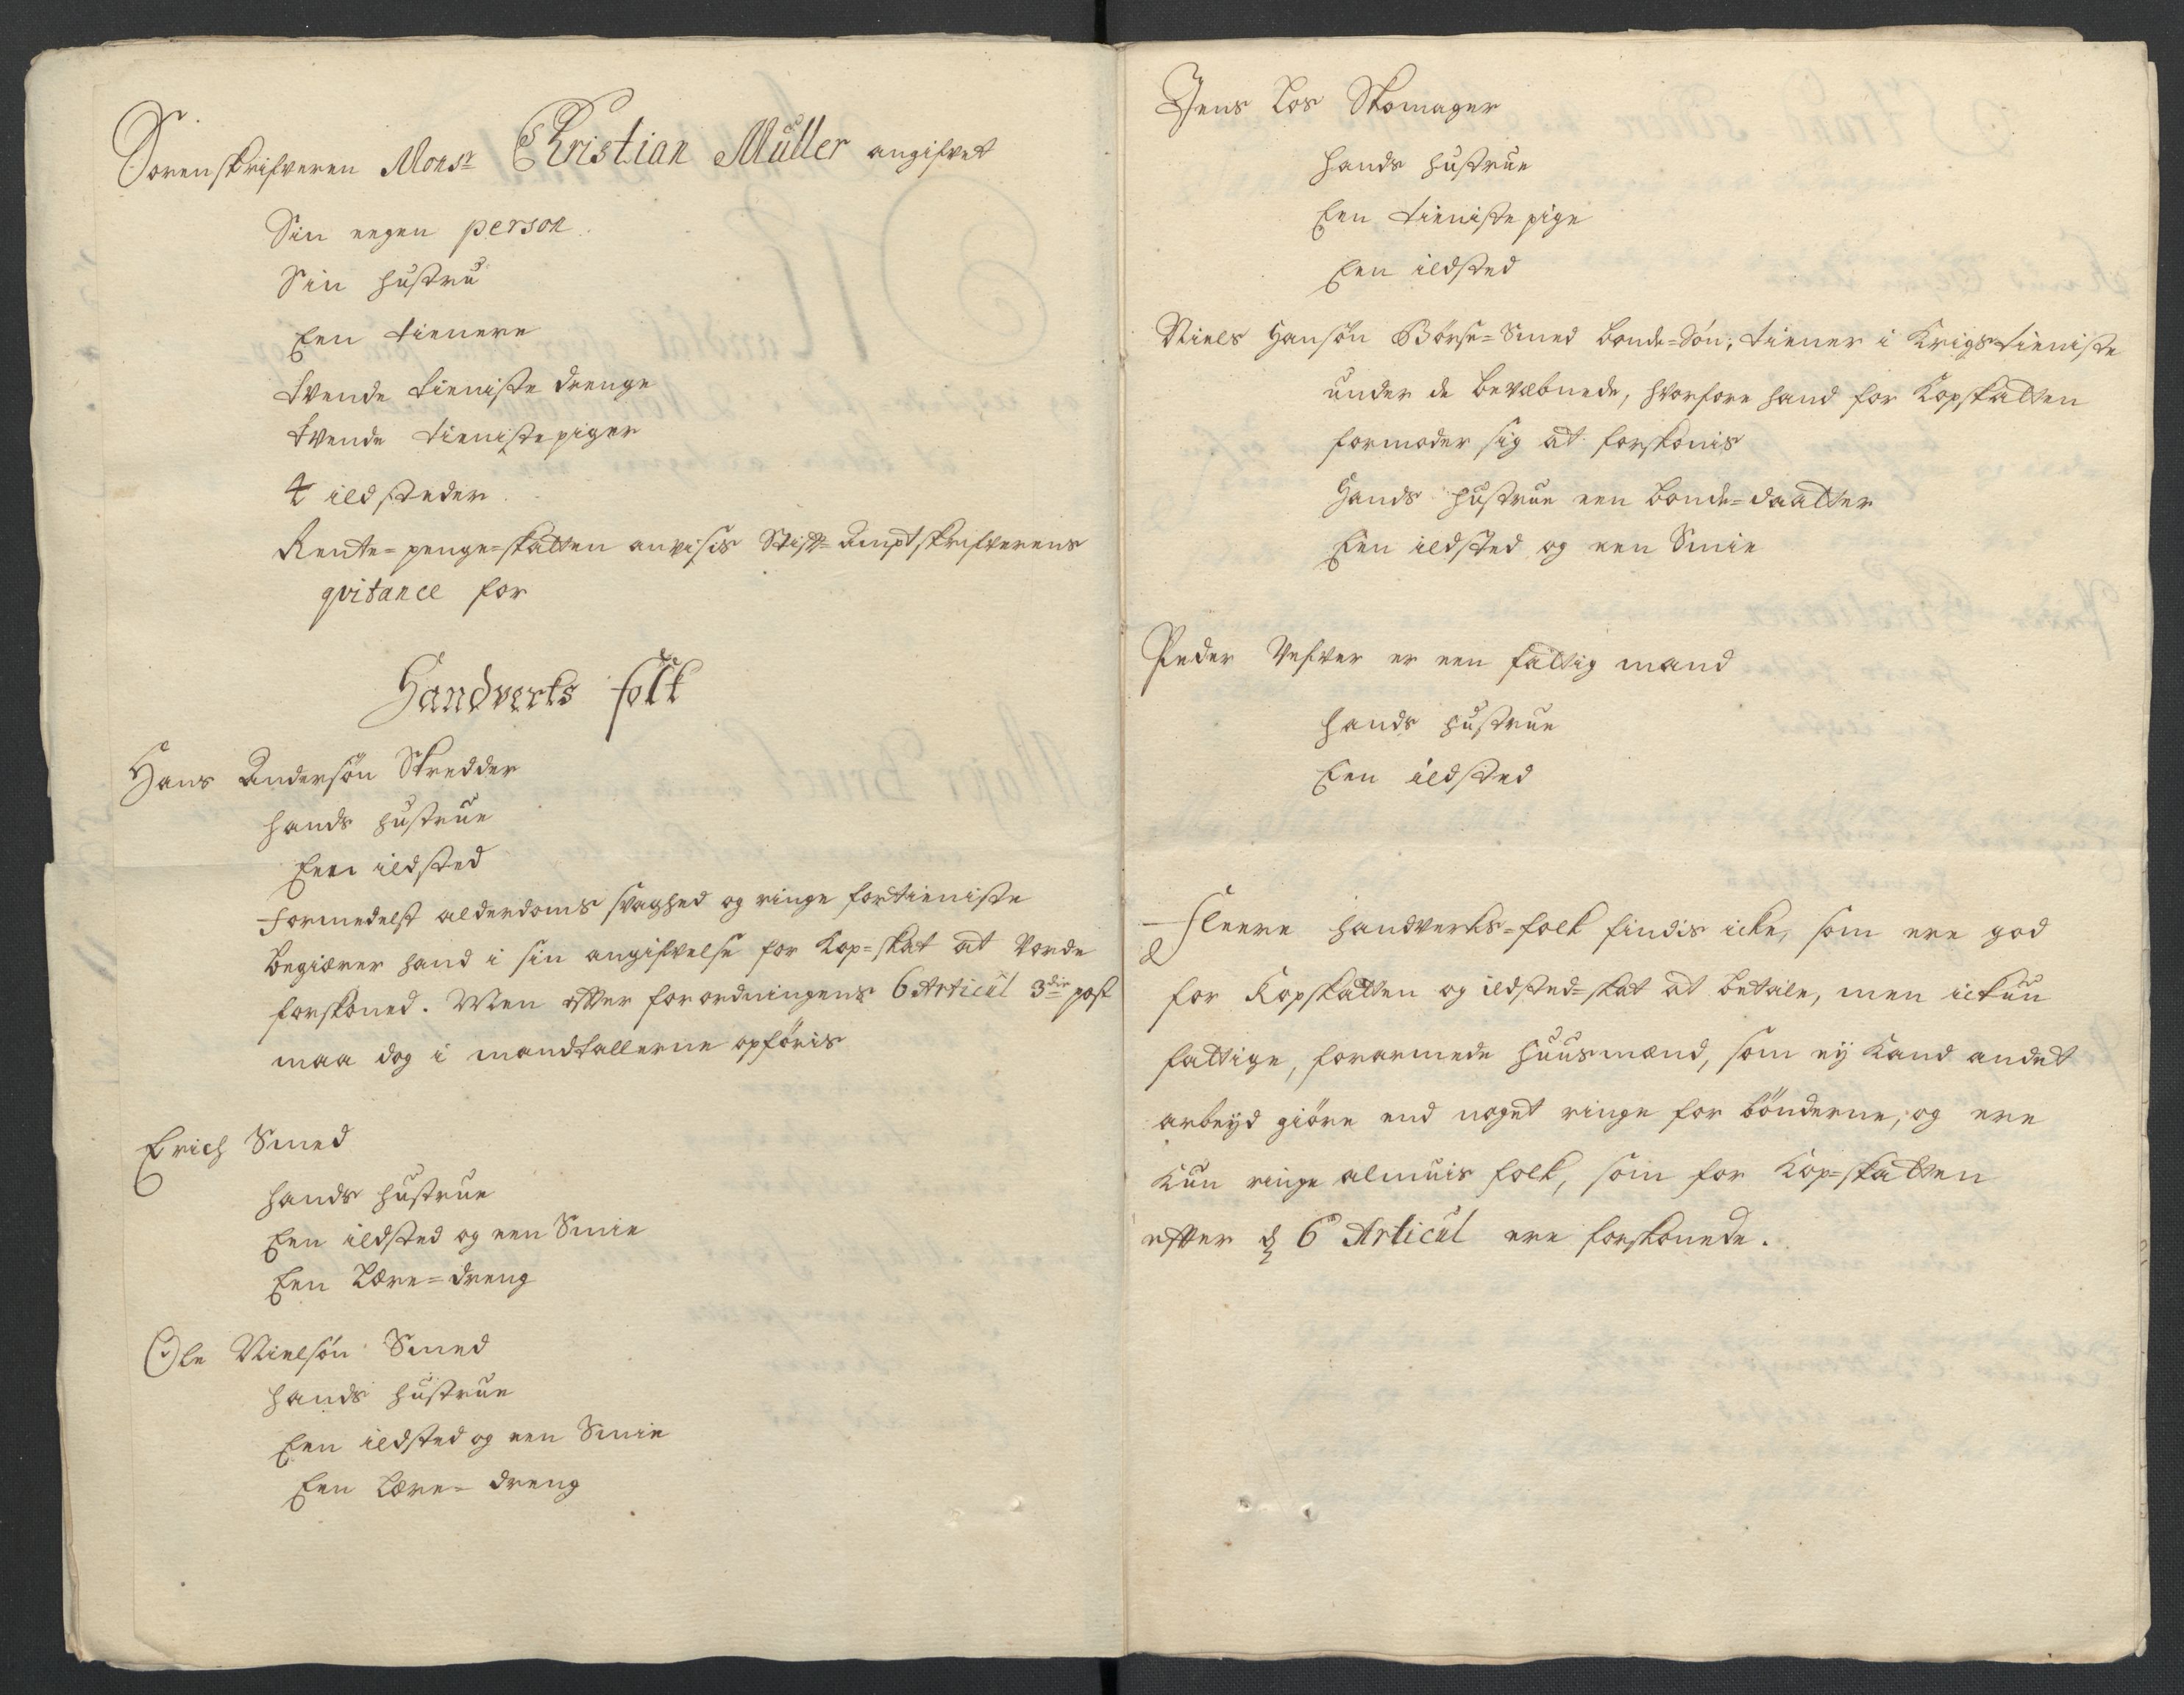 Sorenskrifveren Monsr Christian Müller angifvet
Sin eegen person
Sin hustru
Een tienere
Tvende tieniste drenge
Tvende tienistepiger
4 ildsteder
Rente=penge=skatten anvisis Stift=Amptskrifverens
qvitance for
Handverks folk
Hans Andersøn Skredder
hands hustrue
Een ildsted
Formedelst alderdoms svaghed og ringe fortieniste
begiærer hand i sin angifvelse for Kop=skat at vorde
forskoned. Men efter forordningens 6 Articul 3die post
maa dog i mandtallerne opføris
Erich Smed
hands hustrue
Een ildsted og een Smie
Een Lære=dreng
Ole Nielsøn Smed
hands hustrue
Een ildsted og een Smie
Een Lære=dreng
Jens Los Skomager
hands hustrue
Een tienistepige
Een ildsted
Niels Hansøn Børse=Smed bonde=Søn, tiener i Krigstieniste
under de bevæbnede, hvorfore hand for Kopskatten
formoder sig at forskonis
Hands hustrue een bonde=daatter
Een ildsted og een Smie
Peder Vefver er een fattig mand
hands hustrue
Een ildsted
Fleere handverks=folk findis icke, som ere god
for Kopskatten og ildsted=skat at betale, men ickun
fattige, forarmede huusmænd, som ey kand andet
arbeyd giøre end noget ringe for bønderne, og ere
kun ringe almuis folk, som for Kop=skatten
efter d 6 Articul ere forskonede.